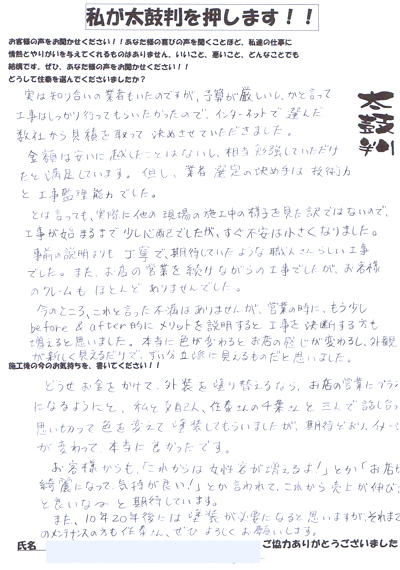 私が太鼓判を押します！！
お客様の声をお聞かせください！！あなた様の喜びの声を聞くことほど、私達の仕事に
情熱とやりがいを与えてくれるものはありません。いいこと、悪いこと、どんなことでも
結構です。ぜひ、あなた様の声をお聞かせください！！
どうして住泰を選んでくださいましたか？
太鼓判
実は知り合いの業者もいたのですが、予算が厳しいし、かと言って
工事はしっかり行ってもらいたかったので、インターネットで選んだ
数社から見積を取って決めさせていただきました。
金額は安いに越したことはないし、相当勉強していただけ
たと満足しています。但し、業者選定の決め手は技術力
と工事監理能力でした。
とは言っても、実際に他の現場の施工中の様子を見た訳ではないので、
工事が始まるまで少し心配でしたが、すぐ不安は小さくなりました。
事前の説明よりも丁寧で、期待していたような職人さんらしい工事
でした。また、お店の営業を続けながらの工事でしたが、お客様
のクレームもほとんどありませんでした。
今のところ、これと言った不満はありませんが、営業の時に、もう少し
before & after的にメリットを説明すると工事を決断する方も
増えると思いました。本当に色が変わるとお店の感じが変わるし、外観
が新しく見えるだけで、ずい分立派に見えるものだと思いました。
施工後の今のお気持ちを、書いてください！！
どうせお金をかけて、外装を塗り替えるなら、お店の営業にプラス
になるようにと、私と女将2人、住泰さんの千葉さんと三人で話し合っ
思い切って色を変えて塗装してもらいましたが、期待どおり、イメージ
が変わって、本当に良かったです。
お客様からも、「これからは女性客が増えるよ！」とか「お店が
綺麗になって、気持が良い！」とか言われて、これから売上が伸び
と良いなぁと期待しています。
また、10年20年後には塗装が必要になると思いますが、それまで
のメンテナンスの方も住泰さん、ぜひよろしくお願いします。
氏名
ご協力ありがとうございました